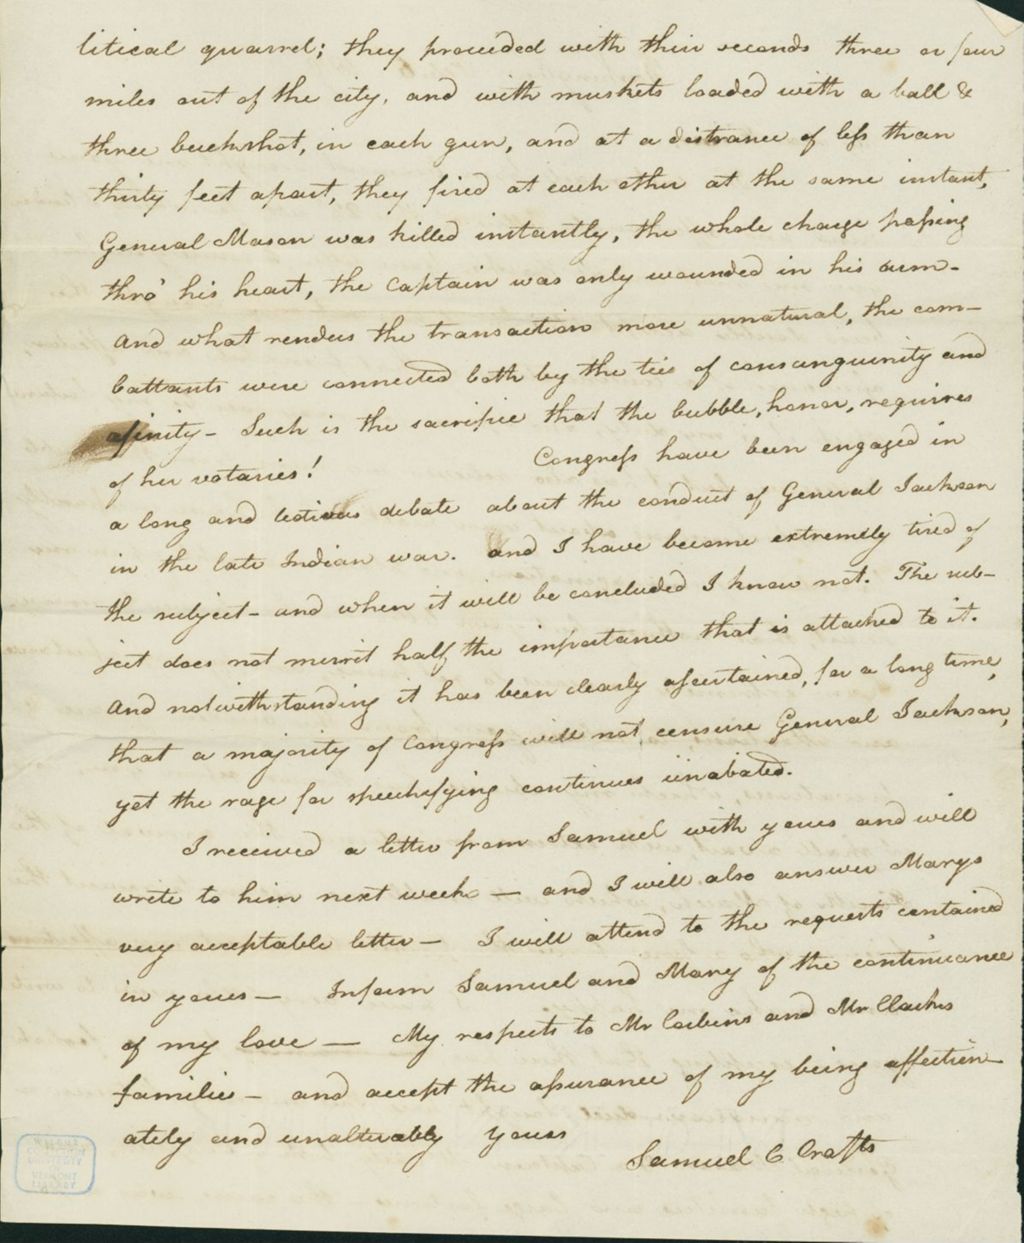 litical quarrel; they proceeded with their seconds three or four
miles out of the city, and with muskets loaded with a ball &
three buckshot, in each gun, and at a distance of less than
thirty feet apart, they fired at each other at the same instant,
General Mason was killed instantly, the whole charge passing
thro' his heart, the Captain was only wounded in his arm -
And what renders the transaction more unnatural, the com-
battants were connected both by the ties of consanguinity and
afinity - Such is the sacrifice that the bubble, honor, requires
of her votaries! Congress have been engaged in
a long and tedious debate about the conduct of General Jackson
in the late Indian war. and I have become extremely tired of
the subject - and when it will be concluded I know not. The sub-
ject does not merrit half the importance that is attached to it.
And notwithstanding it has been clearly ascertained, for a long time,
that a majority of Congress will not censure General Jackson,
yet the rage for speechifying continues unabated.
I received a letter from Samuel with yours and will
write to him next week - and I will also answer Marys
very acceptable letter - I will attend to the requests contained
in yours - Inform Samuel and Mary of the continuance
of my love - My respects to Mr Corbins and Mr Clarks
families - and accept the assurance of my being affection-
ately and unalterably yours
Samuel C Crafts
VERMONT